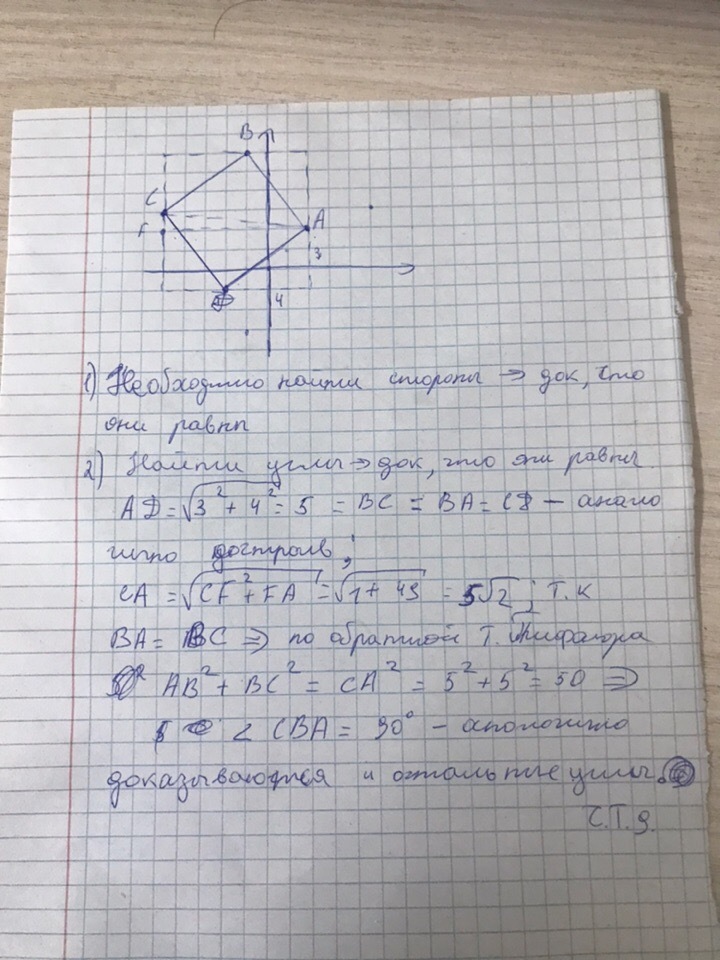 B
C
A
F
3
D
4
1) Необходимо найти стороны ⇒ док, что
они равны
2) Найти углы ⇒ док, что они равны
AD = √3² + 4² = 5 = BC = BA = CD — анало
гично достроив;
CA = √CF² + FA² = √1 + 49 = 5√2; т.к
BA = BC ⇒ по обратной т. Пифагора
AB² + BC² = CA² = 5² + 5² = 50 ⇒
∠ CBA = 90° — аналогично
доказываются и остальные углы.
С.Т.Э.